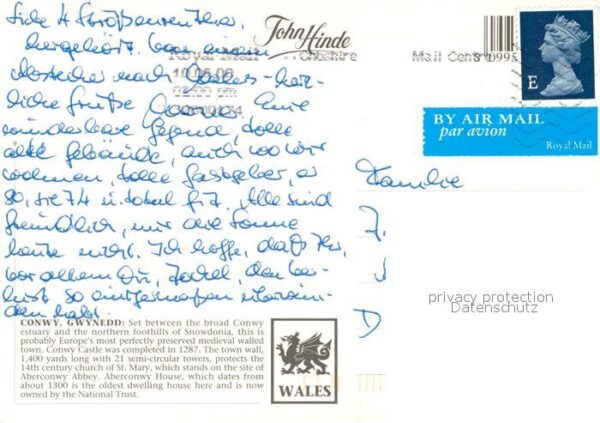 John Hinde
Royal Mail Cheshire Mail Cent
0995
10.05.06
E
BY AIR MAIL
par avion
Royal Mail
Liebe 4
her gehört. Von einem
Abstecher nach Wales herz-
liche Grüße Eine
wunderbare Gegend, tolle
alte Gebäude, auch wo wir
wohnen, tolle Gastgeber, er
80, sie 74 u. total fit. Alle sind
freundlich, nur die Sonne
heute nicht. Ich hoffe, daß Ihr,
vor allem Du, den Ver-
lust so einigermaßen
den habt.
Familie
J.
D
privacy protection
Datenschutz
CONWY, GWYNEDD: Set between the broad Conwy
estuary and the northern foothills of Snowdonia, this is
probably Europe's most perfectly preserved medieval walled
town. Conwy Castle was completed in 1287. The town wall,
1,400 yards long with 21 semi-circular towers, protects the
14th century church of St. Mary, which stands on the site of
Aberconwy Abbey. Aberconwy House, which dates from
about 1300 is the oldest dwelling house here and is now
owned by the National Trust.
WALES